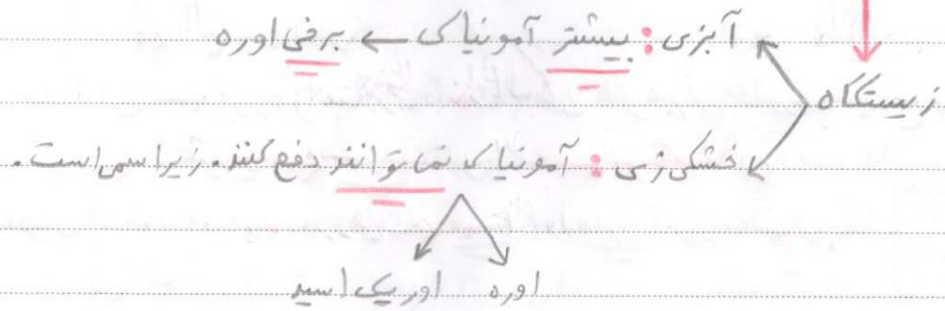 آبزی : بیشتر آمونیاک ← برخی اوره
زیستگاه
خشکی زی : آمونیاک نمی توانند دفع کنند. زیرا سمی است.
اوره اوریک اسید